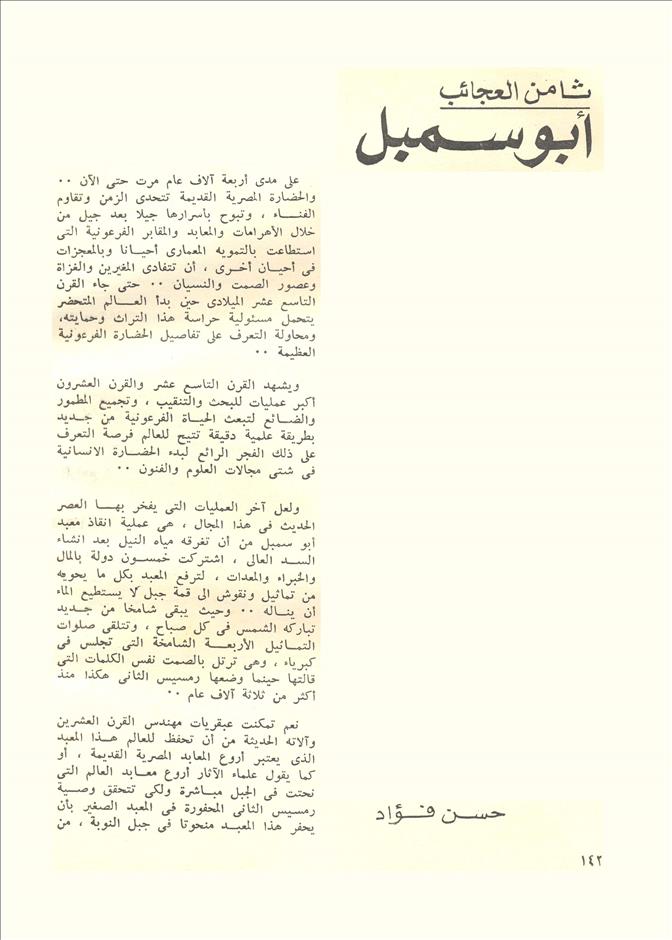 ثامن العجائب
أبو سمبل
على مدى أربعة آلاف عام مرت حتى الآن ٠٠
والحضارة المصرية القديمة تتحدى الزمن وتقاوم
الفنـــاء ، وتبوح بأسرارها جيلا بعد جيل من
خلال الأهرامات والمعابد والمقابر الفرعونية التى
استطاعت بالتمويه المعمارى أحيـانا وبالمعجزات
فى أحيـان أخـرى ، أن تتفادى المغيرين والغزاة
وعصور الصمت والنسيان ٠٠ حتى جاء القرن
التاسع عشر الميلادى حين بدأ العــالم المتحضر
يتحمل مسئولية حراسة هذا التراث وحمايته،
ومحاولة التعرف على تفاصيل الحضارة الفرعونية
العظيمة ٠٠
ويشهد القرن التاسع عشر والقرن العشرون
أكبر عمليات للبحث والتنقيب ، وتجميع المطمور
والضــائع لتبعث الحيـاة الفرعونية من جـديد
بطريقة علمية دقيقة تتيح للعالم فرصة التعرف
على ذلك الفجر الرائع لبدء الحضارة الانسانية
فى شتى مجالات العلوم والفنون ٠٠
ولعل آخر العمليات التى يفخر بهـــا العصر
الحديث فى هذا المجال ، هى عملية انقاذ معبد
أبو سمبل من أن تغرقه مياه النيل بعد انشاء
السد العالى ، اشتركت خمســون دولة بالمال
والخبراء والمعدات ، لترفع المعبد بكل ما يحويه
من تماثيل ونقوش الى قمة جبل لا يستطيع الماء
أن ينـاله ٠٠ وحيث يبقى شامخا من جـديد
تباركه الشمس فى كل صباح ، وتتلقى صلوات
التمـاثيل الأربعــة الشامخة التى تجلس فى
كبرياء ، وهى ترتل بالصمت نفس الكلمات التى
قالتها حينما وضعها رمسيس الثانى هكذا منذ
أكثر من ثلاثة آلاف عام ٠٠
نعم تمكنت عبقريات مهندس القرن العشرين
وآلاته الحديثة من أن تحفظ للعالم هــذا المعبد
الذى يعتبر أروع المعابد المصرية القديمة ، أو
كما يقول علماء الآثار أروع معـابد العالم التى
نحتت فى الجبل مبـاشرة ولكى تتحقق وصـية
رمسيس الثانى المحفورة فى المعبد الصغير بأن
يحفر هذا المعبـد منحوتا فى جبل النوبة ، من
حسن فؤاد
١٤٢